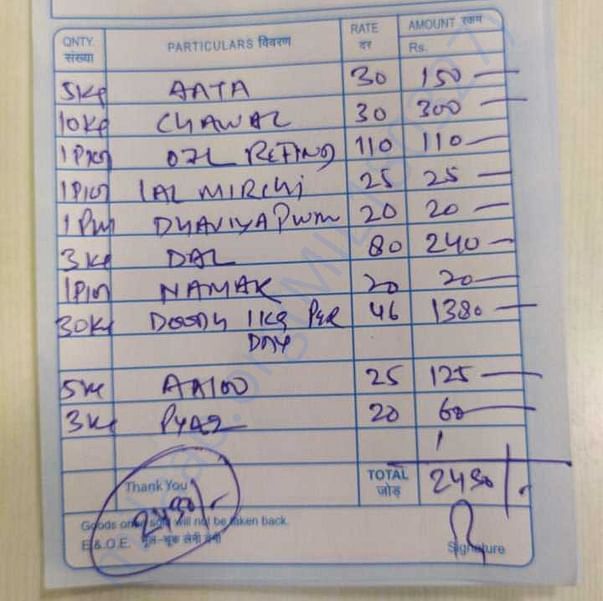 QNTY. संख्या PARTICULARS विवरण RATE दर AMOUNT रकम Rs.
5Kg AATA 30 150
10Kg CHAWAL 30 300
OIL REFIND 110 110
LAL MIRCHI 25 25
20 20
3 Kg DAL 80 240
NAMAK 20 20
30Kg DOODH 1KG PER DAY 46 1380
5Kg AALOO 25 125
3Kg PYAZ 20 60
Thank You TOTAL जोड़ 2430/-
2430/-
Goods once sold will not be taken back.
E.&.O.E. भूल-चूक लेनी देनी Signature